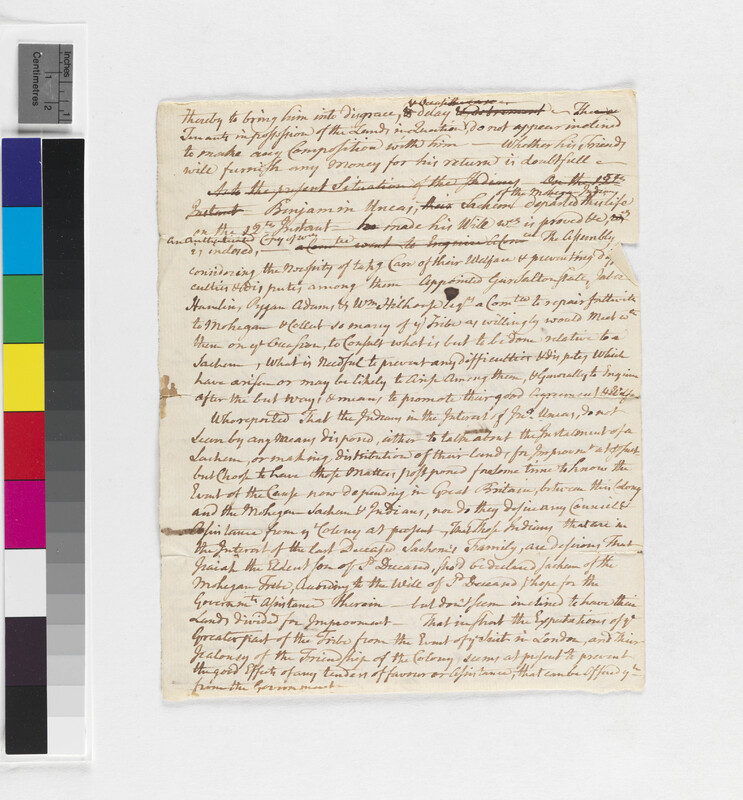 Inches
1
2
Centimetres
thereby to bring him into disgrace, & delay & detriment – The
Tenants in possession of the Lands in Question, do not appear inclined
to make any Composition with him – Whether his Friends
will furnish any Money for his return is doubtfull –
As to the present Situation of the Indians – On the 12th
Instant Benjamin Uncas, their Sachem of the Mohegan Indians departed this life
on the 12th Instant – he made his Will wch is proved &
an authenticated Copy of wch
is inclosed, – a Comtee went to Enquire The Assembly
considering the Necessity of takg Care of their Welfare & preventing Diffi
culties & disputes among them – Appointed Gurdon Saltonstall, Jabez
Hamlin, Pygan Adams, & Wm Hilhouse Esqrs a Comtee to repair forthwith
to Mohegan & Collect so many of ye Tribe as willingly would Meet wth
them on yt Occasion, to Consult what is best to be done relative to a
Sachem, What is Needful to prevent any difficulties & disputes, Which
have arisen or may be likely to Arise Among them, & Generally to Enquire
after the best ways & means to promote their good Agreement &
Who reported That the Indians in the Interest of Jno Uncas, do not
seem by any Means disposed, either to talk about the Instalment of a
Sachem, or making distribution of their Lands for Improvmt at present
but Choose to have those Matters postponed for some time to know the
Event of the Case now depending in Great Britain, between this Colony
and the Mohegan Sachem & Indians, nor do they desire any Council &
Assistance from ye Colony at present, That those Indians that are in
the Interest of the Last Deceased Sachem's Family, are desirous That
Isaiah the Eldest son of sd Deceased, shod be declared Sachem of the
Mohegan Tribe, According to the Will of sd Deceased & hope for the
Governmts Assistance therein – but don't seem inclined to have their
Lands divided for Improvement – That in short the Expectations of ye
Greater part of the Tribe from the Event of ye Suit in London, and their
Jealousy of the Friendship of the Colony seems at present to prevent
the good Effects of any tenders of favour or Assistance, that can be Offered ym
from the Government